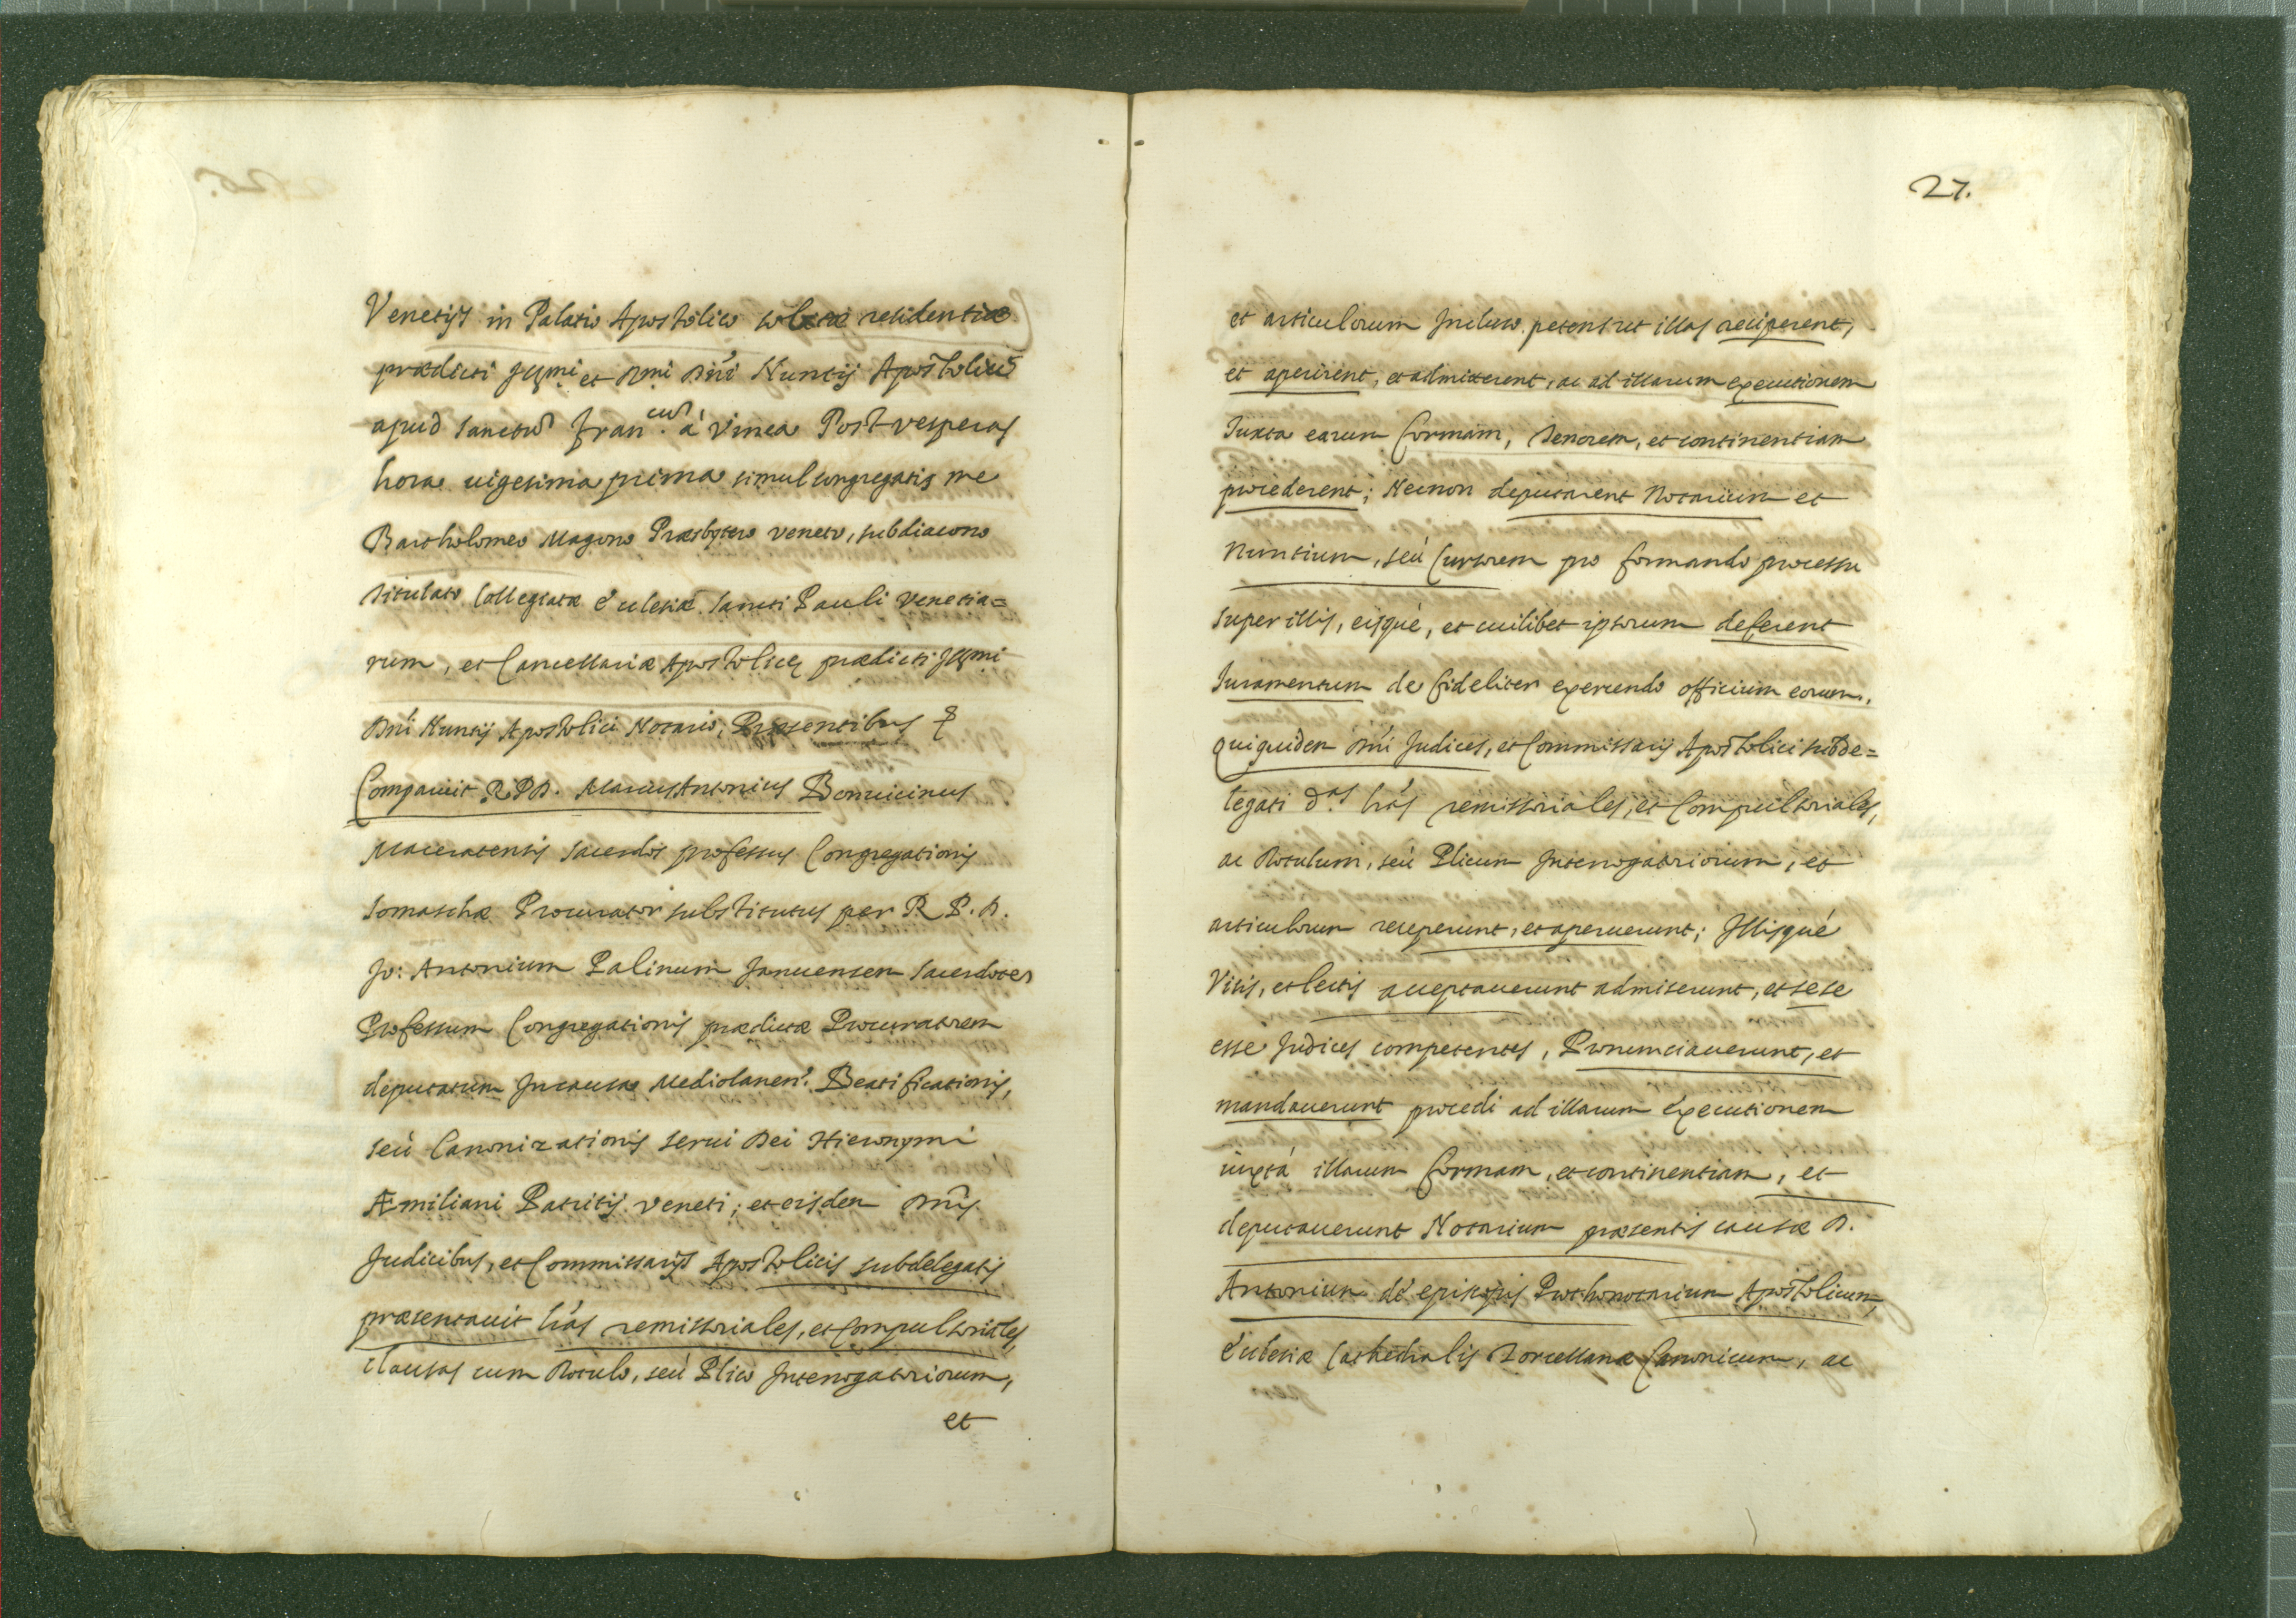 Venetijs in Palatio Apostolico solitæ residentiæ
prædicti Illmi et Rmi Dñi Nuntij Apostolici
apud Sanctum Fran.cum à Vinea Post vesperas
hora uigesima prima simul congregatis me
Bartholomeo Magono Præsbytero veneto, subdiacono
titulato Collegiatæ Ecclesiæ Sancti Pauli Venetia=
rum, et Cancellariæ Apostolicæ prædicti Illmi
Dñi Nuntij Apostolici Notario, Præsentibus
Comparuit R.P.D. Marcus Antonius Bonuicinus
Maceratensis Sacerdos professus Congregationis
Somaschæ Procurator substitutus per R.P.D.
Jo: Antonium Palinum Januensem Sacerdotem
Professum Congregationis prædictæ Procuratorem
deputatum In causa Mediolanen. Beatificationis,
seù Canonizationis serui Dei Hieronymi
Æmiliani Patritij Veneti; et eisdem Dñis
Judicibus, et Commissarijs Apostolicis subdelegatis
præsentauit lr̃as remissoriales, et Compulsoriales,
clausas cum Rotulo, seù Plico Interrogatoriorum,
et
27.
et articulorum Incluso. petens ut illas reciperent,
et aperirent, et admitterent, ac ad illarum executionem
Iuxta earum formam, tenorem, et continentiam
procederent; Necnon deputarent Notarium et
Nuntium, seù Cursorem pro formando processu
super illis, eisquè, et cuilibet ipsorum deferent
Iuramentum de fideliter exercendo officium eorum.
Quiquidem Dñi Judices, et Commissarij Apostolici subde=
legati d.as lr̃as remissoriales, et Compulsoriales,
ac Rotulum, seù Plicum Interrogatoriorum, et
articulorum receperunt, et aperuerunt; Illisquè
Visis, et lectis acceptauerunt admiserunt, et sese
esse Judices competentes, Pronunciauerunt, et
mandauerunt procedi ad illarum executionem
iuxtà illarum formam, et continentiam, et
deputauerunt Notarium præsentis causæ D.
Antonium de episcopis Prothonotarium Apostolicum,
Ecclesiæ Cathedralis Torcellanæ Canonicum, ac